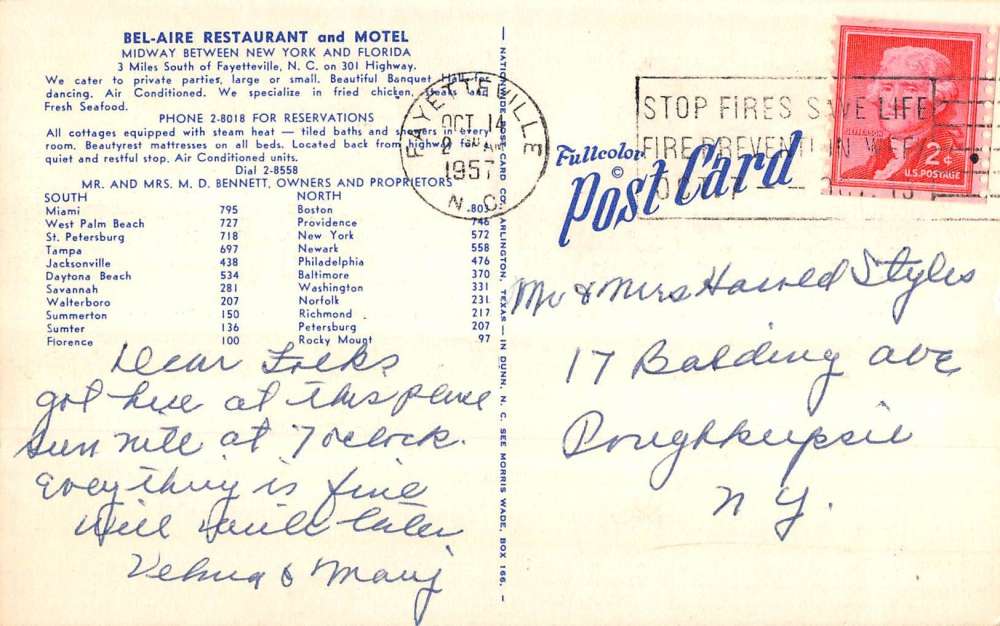 BEL-AIRE RESTAURANT and MOTEL
MIDWAY BETWEEN NEW YORK AND FLORIDA
3 Miles South of Fayetteville, N. C. on 301 Highway.
We cater to private parties, large or small. Beautiful Banquet Hall for
dancing. Air Conditioned. We specialize in fried chicken, steaks and
Fresh Seafood.
PHONE 2-8018 FOR RESERVATIONS
All cottages equipped with steam heat — tiled baths and showers in every
room. Beautyrest mattresses on all beds. Located back from highway
quiet and restful stop. Air Conditioned units.
Dial 2-8558
MR. AND MRS. M. D. BENNETT, OWNERS AND PROPRIETORS
SOUTH NORTH
Miami 795 Boston 803
West Palm Beach 727 Providence 746
St. Petersburg 718 New York 572
Tampa 697 Newark 558
Jacksonville 438 Philadelphia 476
Daytona Beach 534 Baltimore 370
Savannah 281 Washington 331
Walterboro 207 Norfolk 231
Summerton 150 Richmond 217
Sumter 136 Petersburg 207
Florence 100 Rocky Mount 97
Dear Folks
got here at this place
Sun nite at 7 oclock.
Everything is fine
Will write later
Velma &
NATIONWIDE POST CARD CO., ARLINGTON, TEXAS — IN DUNN, N. C. SEE MORRIS WADE, BOX 166.
FAYETTEVILLE
OCT 14
1957
N. C.
STOP FIRES SAVE LIFE
FIRE PREVENTION WEEK
JEFFERSON
2¢
U.S. POSTAGE
Fullcolor
©
Post Card
Mr & Mrs Harold Styles
17 Balding ave
Poughkeepsie
N Y.